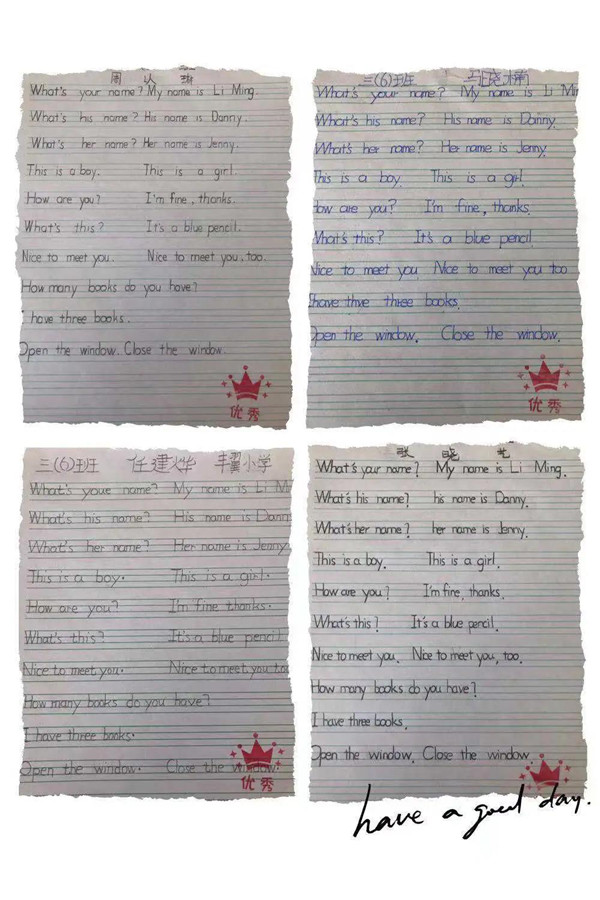 周 琳
What's your name? My name is Li Ming.
What's his name? His name is Danny.
What's her name? Her name is Jenny.
This is a boy. This is a girl.
How are you? I'm fine, thanks.
What's this? It's a blue pencil.
Nice to meet you. Nice to meet you, too.
How many books do you have?
I have three books.
Open the window. Close the window.
优秀
三(6)班
What's your name? My name is Li Min
What's his name? His name is Danny.
What's her name? Her name is Jenny.
This is a boy. This is a girl.
How are you? I'm fine, thanks.
What's this? It's a blue pencil.
Nice to meet you Nice to meet you too
I have thve three books.
Open the window. Close the window.
优秀
三(6)班 任建烨 丰翼小学
What's youe name? My name is Li Mi
What's his name? His name is Dann
What's her name? Her name is Jenny
This is a boy. This is a girl.
How are you? I'm fine thanks.
What's this? It's a blue pencil
Nice to meet you. Nice to meet you to
How many books do you have?
I have three books.
Open the window. Close the window.
优秀
晓
What's your name? My name is Li Ming.
What's his name? his name is Danny.
What's her name? her name is Jenny.
This is a boy. This is a girl.
How are you? I'm fine, thanks.
What's this? It's a blue pencil.
Nice to meet you. Nice to meet you, too.
How many books do you have?
I have three books.
Open the window. Close the window
have a good day.